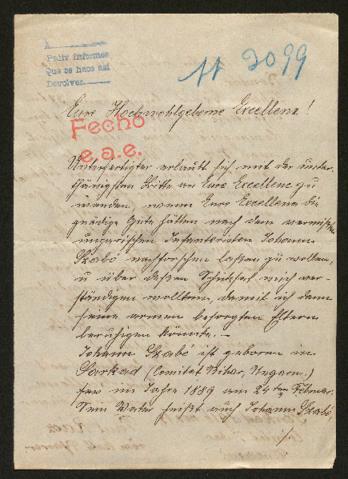 A
Pedir informes
Que se hace así
Devolver
11 3099
Euer Hochwohlgeborne Excellenz!
Fecho
e.a.e.
Unterfertigter erlaubt sich mit der unter-
thänigsten Bitte an Eure Excellenz zu
wenden wenn Eure Excellenz die
gnädige Güte hätten nach dem vermißten
ungarischen Infanteristen Johann
Szabó nachforschen laßen zu wollen,
u über deßen Schicksal mich ver-
ständigen wollten, damit ich dann
seine armen besorgten Eltern
beruhigen könnte. —
Johann Szabó ist geboren in
Sarkad (Comitat Bihar, Ungarn.)
im Jahre 1889 am 24ten Februar.
Sein Vater heißt auch Johann Szabó,